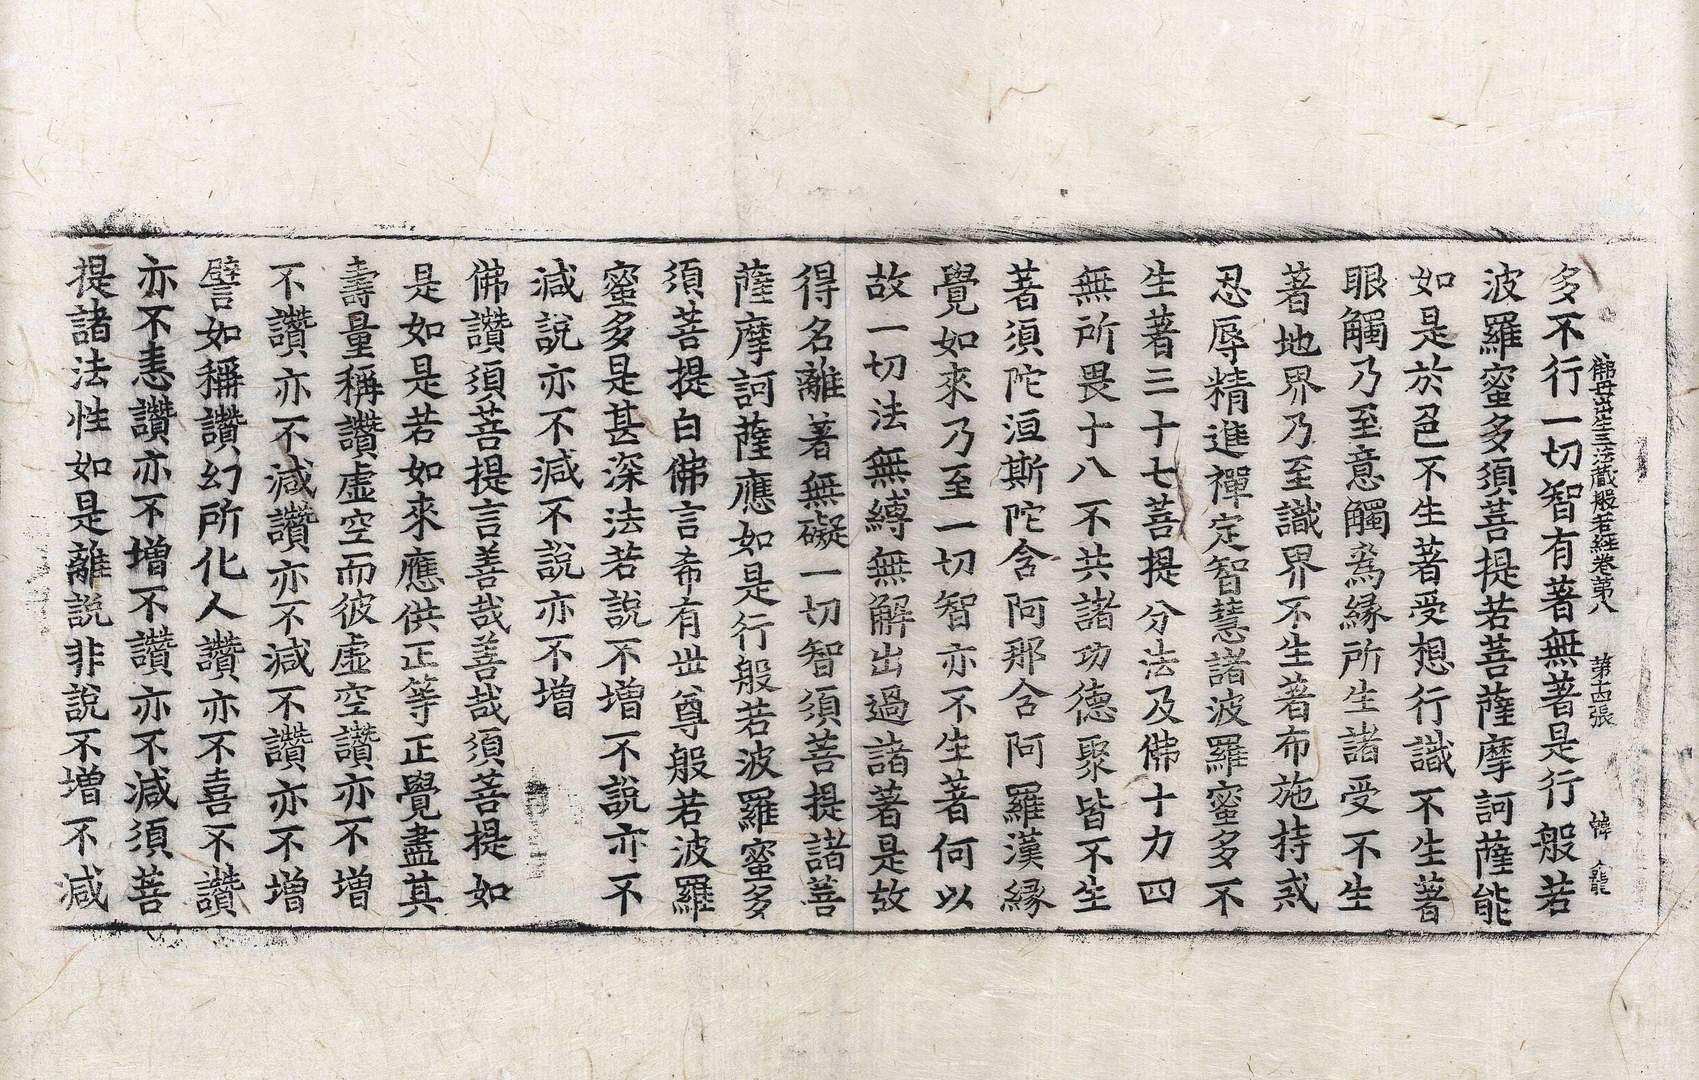 佛母出生三法藏般若經卷第八 第十四張 韓 龍
多不行一切智有著無著是行般若
波羅蜜多須菩提若菩薩摩訶薩能
如是於色不生著受想行識不生著
眼觸乃至意觸爲緣所生諸受不生
著地界乃至識界不生著布施持戒
忍辱精進禪定智慧諸波羅蜜多不
生著三十七菩提分法及佛十力四
無所畏十八不共諸功德聚皆不生
著須陀洹斯陀含阿那含阿羅漢緣
覺如來乃至一切智亦不生著何以
故一切法無縛無解出過諸著是故
得名離著無礙一切智須菩提諸菩
薩摩訶薩應如是行般若波羅蜜多
須菩提白佛言希有世尊般若波羅
蜜多是甚深法若說不增不說亦不
減說亦不減不說亦不增
佛讚須菩提言善哉善哉須菩提如
是如是若如來應供正等正覺盡其
壽量稱讚虛空而彼虛空讚亦不增
不讚亦不減讚亦不減不讚亦不增
譬如稱讚幻所化人讚亦不喜不讚
亦不恚讚亦不增不讚亦不減須菩
提諸法性如是離說非說不增不減